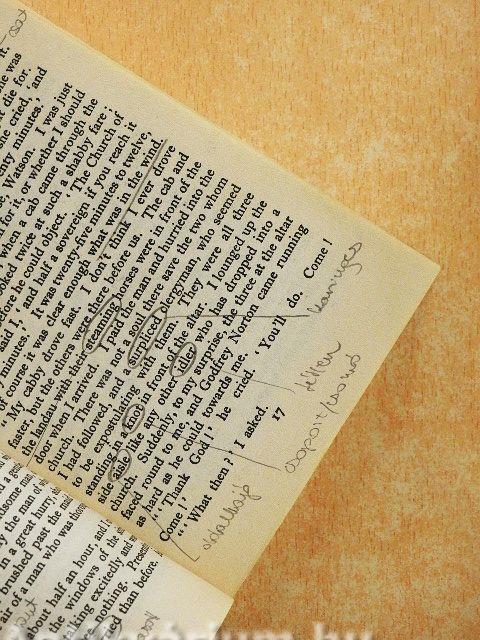 it.
he was
die for
he cried, 'and
ty minutes.'
Watson. I was just
for it, or whether I should
when a cab came through the
ed twice at such a shabby fare;
fore he could object. 'The Church of
said I, 'and half a sovereign if you reach it
y minutes.' It was twenty-five minutes to twelve,
of course it was clear enough what was in the wind.
'My cabby drove fast. I don't think I ever drove
faster, but the others were there before us. The cab and
he landau with their steaming horses were in front of the
door when I arrived. I paid the man and hurried into the
church. There was not a soul there save the two whom
I had followed, and a surpliced clergyman, who seemed
to be expostulating with them. They were all three
standing in a knot in front of the altar. I lounged up the
side aisle like any other idler who has dropped into a
church. Suddenly, to my surprise, the three at the altar
faced round to me, and Godfrey Norton came running
as hard as he could towards me.
"'Thank God!' he cried. 'You'll do. Come!
Come!'
"'What then?' I asked.
17
by the man of
in a great hurry,
brushed past the
air of a man who was
about half an hour, and
the windows of the
alking excitedly and
see nothing.
ried than before